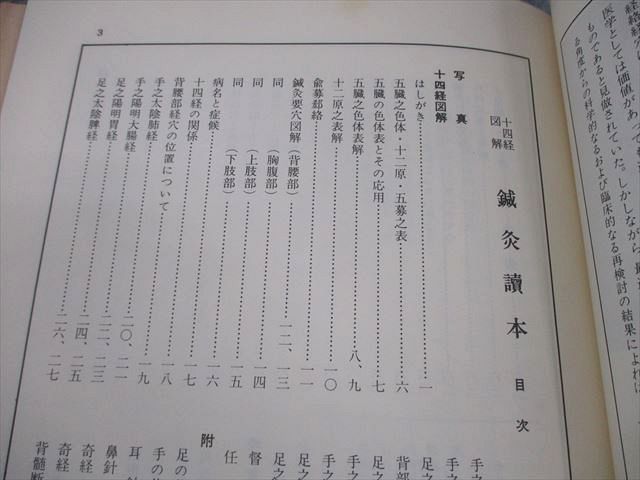 医学としては価値があ
ものであると見做されていた。しかしながら、最
る角度からの科学的なるおよび臨床的なる再検討の結果によれば
3
十四経
図解
鍼灸讀本
目次
写真
十四経図解
はしがき……一
五臓之色体・十二原・五募之表……六
五臓の色体表とその応用……七
五臓之色体表解……八、九
十二原之表解……一〇
兪募郄絡……一一
鍼灸要穴図解(背腰部)……一二、一三
同(胸腹部)……一四
同(上肢部)……一五
同(下肢部)
病名と症候……一六
十四経の関係……一七
背腰部経穴の位置について……一八
手之太陰肺経……一九
手之陽明大腸経……二〇、二一
足之陽明胃経……二二、二三
足之太陰脾経……二四、二五
二六、二七
手之
手之
足之
背部
足之
手之
手之
足之
足之
督
任
附
足の
手の
耳
鼻針
奇経
奇経
背髄断